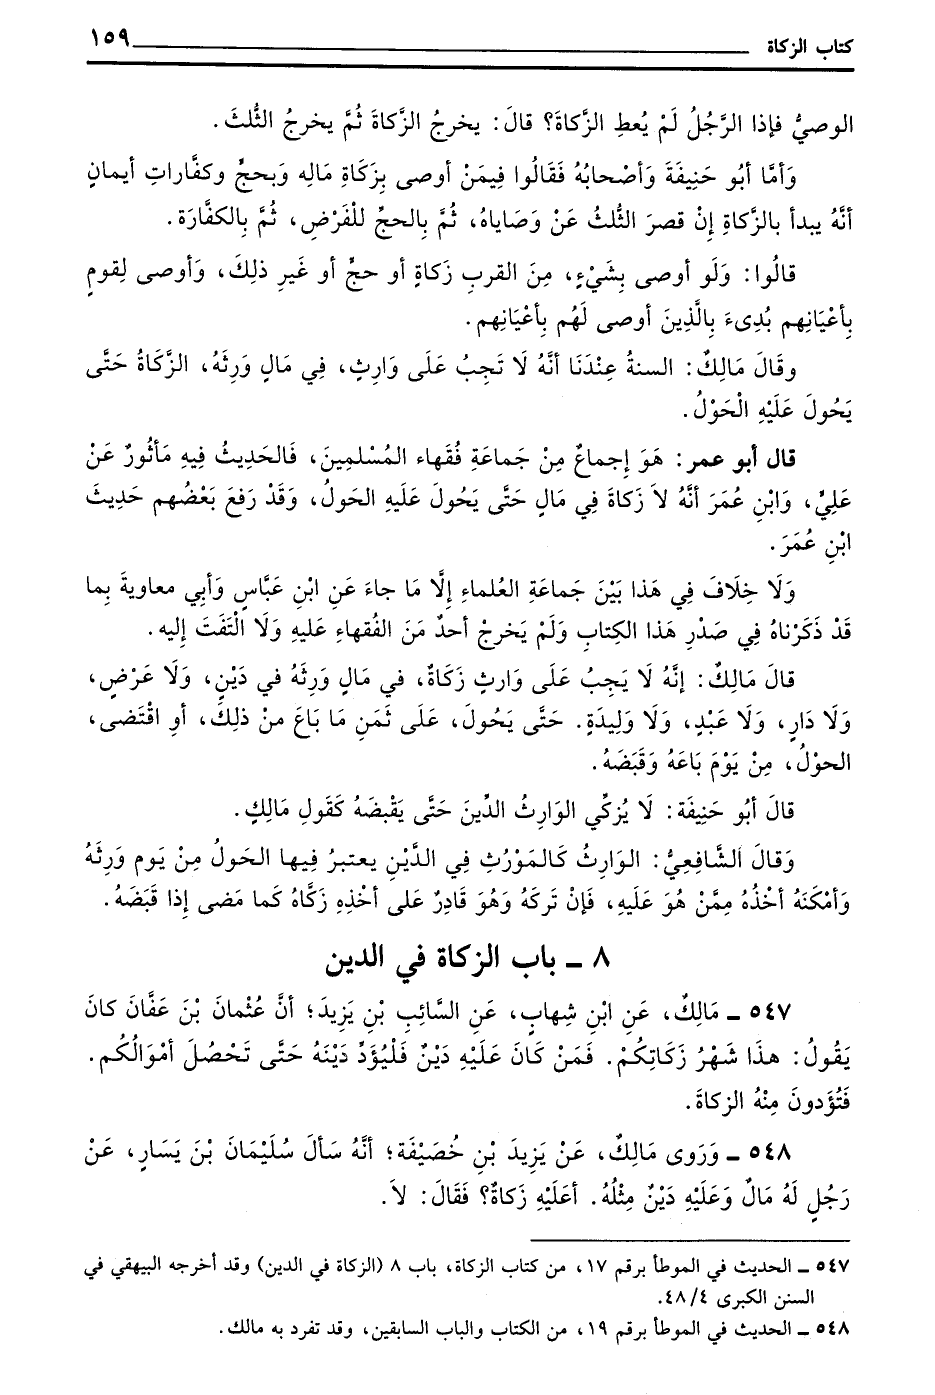 كتاب الزكاة ١٥٩
الوصيُّ فإذا الرَّجُلُ لَمْ يُعطِ الزَّكاةَ؟ قالَ: يخرجُ الزَّكاةَ ثُمَّ يخرجُ الثُّلثَ.
وَأمَّا أبُو حَنِيفَةَ وَأصْحابُهُ فَقَالُوا فِيمَنْ أوصى بِزَكَاةِ مَالِه وَبحجٍّ وكفَّاراتِ أيمانٍ
أنَّهُ يبدأ بالزَّكاةِ إنْ قصرَ الثُّلثُ عَنْ وَصَاياهُ، ثُمَّ بِالحجِّ للْفَرْضِ، ثُمَّ بِالكفَّارَة.
قالُوا: وَلَو أوصى بِشَيْءٍ، مِنَ القربِ زَكاةٍ أو حجٍّ أو غَيرِ ذلِكَ، وَأوصى لِقومٍ
بِأعْيَانِهِم بُدِىءَ بِالَّذِينَ أوصى لَهُم بِأعْيَانِهِم.
وقَالَ مَالِكٌ: السنةُ عِنْدَنَا أنَّهُ لَا تَجِبُ عَلَى وَارِثٍ، فِي مَالٍ وَرِثَهُ، الزَّكَاةُ حَتَّى
يَحُولَ عَلَيْهِ الْحَوْلُ.
قال أبو عمر: هَوَ إجماعٌ مِنْ جَماعَةِ فُقَهاء المُسْلمِينَ، فَالحَدِيثُ فِيهِ مَأثُورٌ عَنْ
عَلِيٍّ، وَابْنِ عُمَرَ أنَّهُ لاَ زَكَاةَ فِي مَالٍ حَتَّى يَحُولَ عَلَيهِ الحَولُ، وَقَدْ رَفعَ بَعْضُهم حَدِيثَ
ابْنِ عُمَرَ.
وَلَا خِلَافَ فِي هَذا بَيْنَ جَماعَةِ العُلماءِ إلَّا مَا جاءَ عَنِ ابْنِ عَبَّاسٍ وَأبي معاويةَ بِما
قَدْ ذَكَرْناهُ فِي صَدْرِ هَذا الكِتابِ وَلَمْ يَخرجْ أحدٌ مَنَ الفُقهاءِ عَليهِ وَلَا الْتَفَتَ إليه.
قالَ مَالِكٌ: إنَّهُ لَا يَجِبُ عَلَى وَارثٍ زَكَاةٌ، في مَالٍ وَرِثَهُ في دَيْنٍ، ولَا عَرْضٍ،
وَلَا دَارٍ، وَلَا عَبْدٍ، وَلَا وَلِيدَةٍ. حَتَّى يَحُولَ، عَلَى ثَمَنِ مَا بَاعَ منْ ذلِكَ، أوِ اقْتَضى،
الحوْلُ، مِنْ يَوْمَ بَاعَهُ وَقَبَضَهُ.
قالَ أبُو حَنِيفَة: لَا يُزكِّي الوَارِثُ الدِّينَ حَتَّى يَقْبضَهُ كَقَولِ مَالِكٍ.
وَقالَ الشَّافعِيُّ: الوَارِثُ كَالمَوْرُثِ فِي الدَّيْنِ يعتبرُ فِيها الحَولُ مِنْ يَوم وَرِثَهُ
وَأمْكَنَهُ أخْذُهُ مِمَّنْ هُوَ عَلَيهِ، فَإنْ تَركَهُ وَهُوَ قَادِرٌ عَلى أخْذِهِ زَكَّاهُ كَما مَضى إذا قَبَضَهُ.
٨ ـ باب الزكاة في الدين
٥٤٧ ـ مَالِكٌ، عَنِ ابْنِ شِهابٍ، عَنِ السَّائِبِ بْنِ يَزِيدَ؛ أنَّ عُثْمانَ بْنَ عَفَّانَ كانَ
يَقُولُ: هذَا شَهْرُ زَكَاتِكُمْ. فَمَنْ كَانَ عَلَيْهِ دَيْنٌ فَلْيُؤَدِّ دَيْنَهُ حَتَّى تَحْصُلَ أمْوَالُكُم.
فَتُؤَدونَ مِنْهُ الزكاةَ.
٥٤٨ ـ وَرَوى مَالِكٌ، عَنْ يَزِيدَ بْنِ خُصَيْفَة؛ أنَّهُ سَألَ سُلَيْمَانَ بْنَ يَسَارٍ، عَنْ
رَجُلٍ لَهُ مَالٌ وَعَلَيْهِ دَيْنٌ مِثْلُهُ. أعَلَيْهِ زَكاةٌ؟ فَقَالَ: لاَ.
٥٤٧ ـ الحديث في الموطأ برقم ١٧، من كتاب الزكاة، باب ٨ (الزكاة في الدين) وقد أخرجه البيهقي في
السنن الكبرى ٤/ ٤٨.
٥٤٨ ـ الحديث في الموطأ برقم ١٩، من الكتاب والباب السابقين، وقد تفرد به مالك.